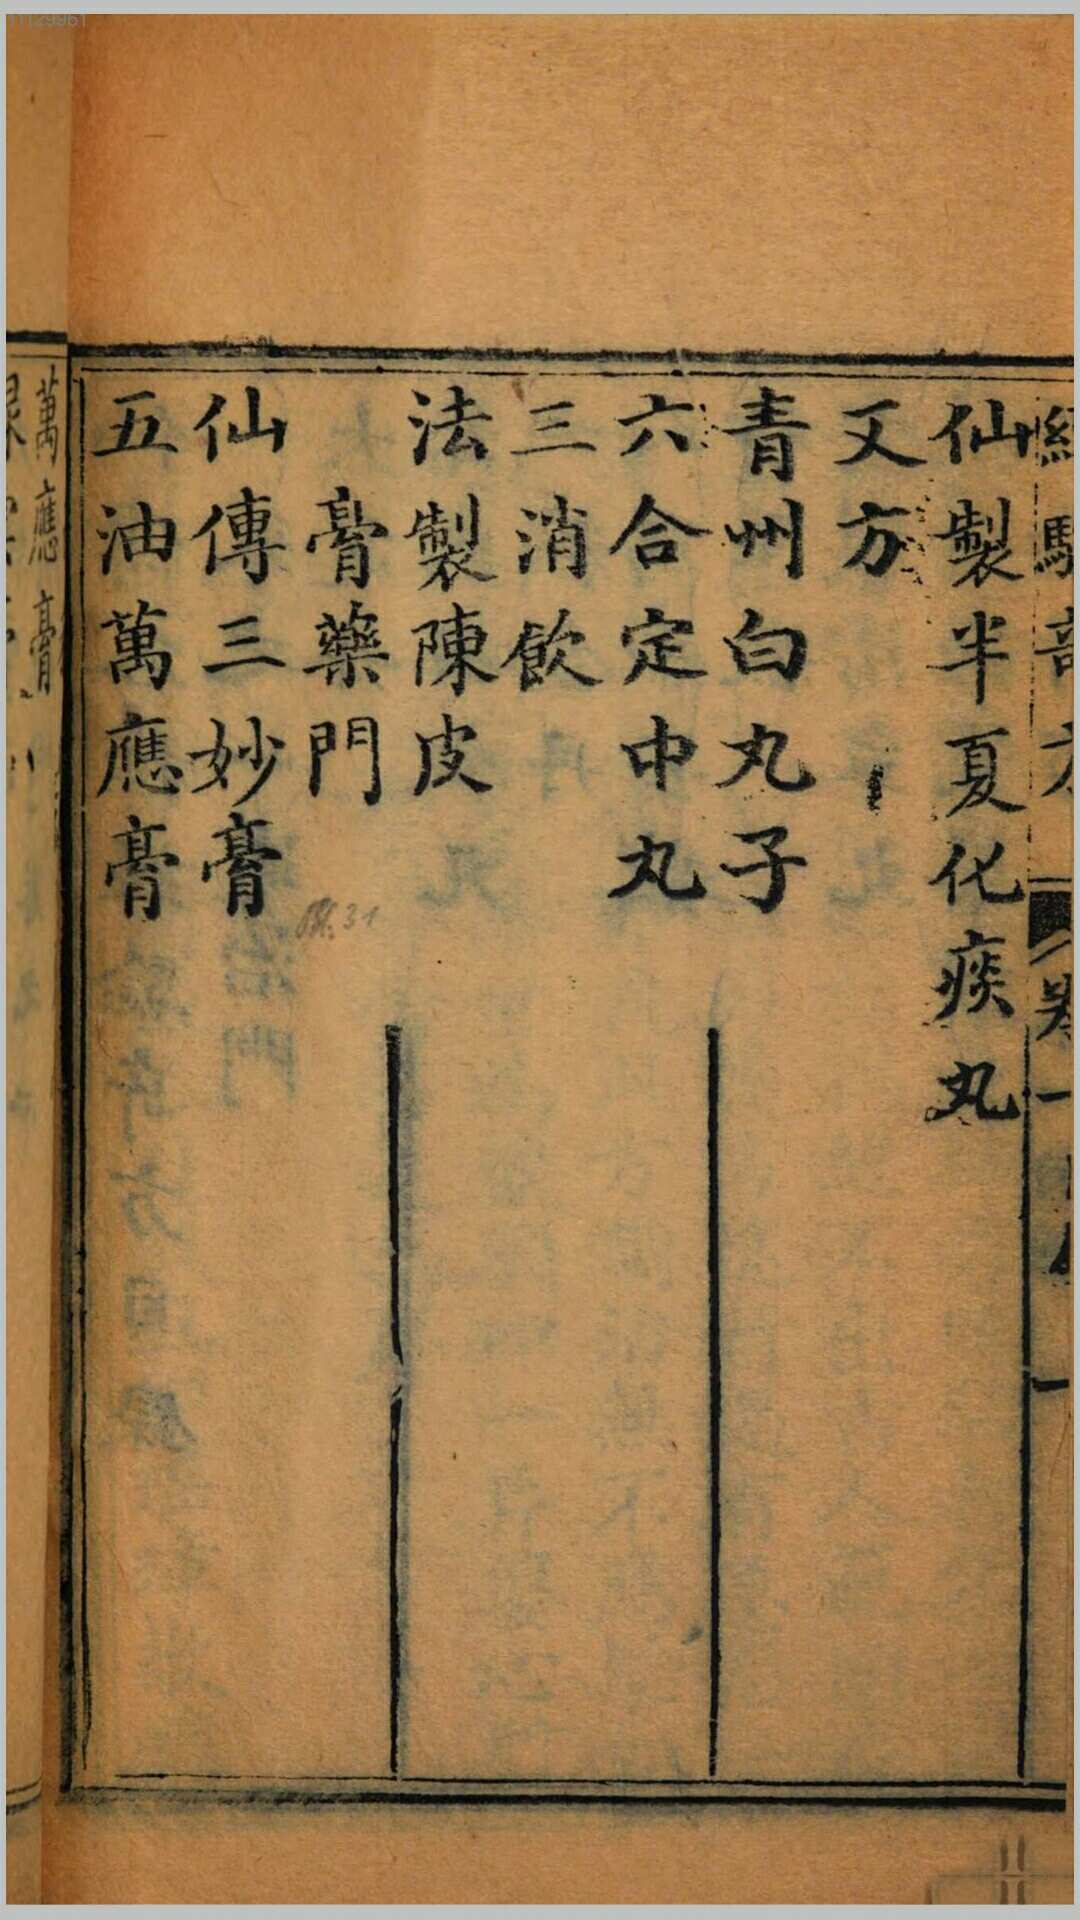 仙製半夏化痰丸
又方
青州白丸子
六合定中丸
三消飲
法製陳皮
膏藥門
仙傳三妙膏
五油萬應膏
萬應膏